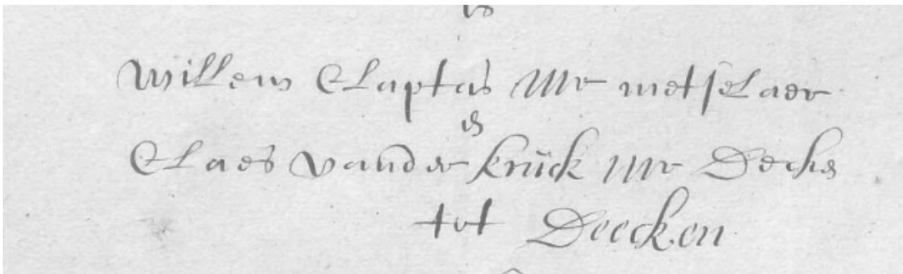 Willem Claptas Mr metselaer
Claes vander krück Mr Decker
tot Deecken